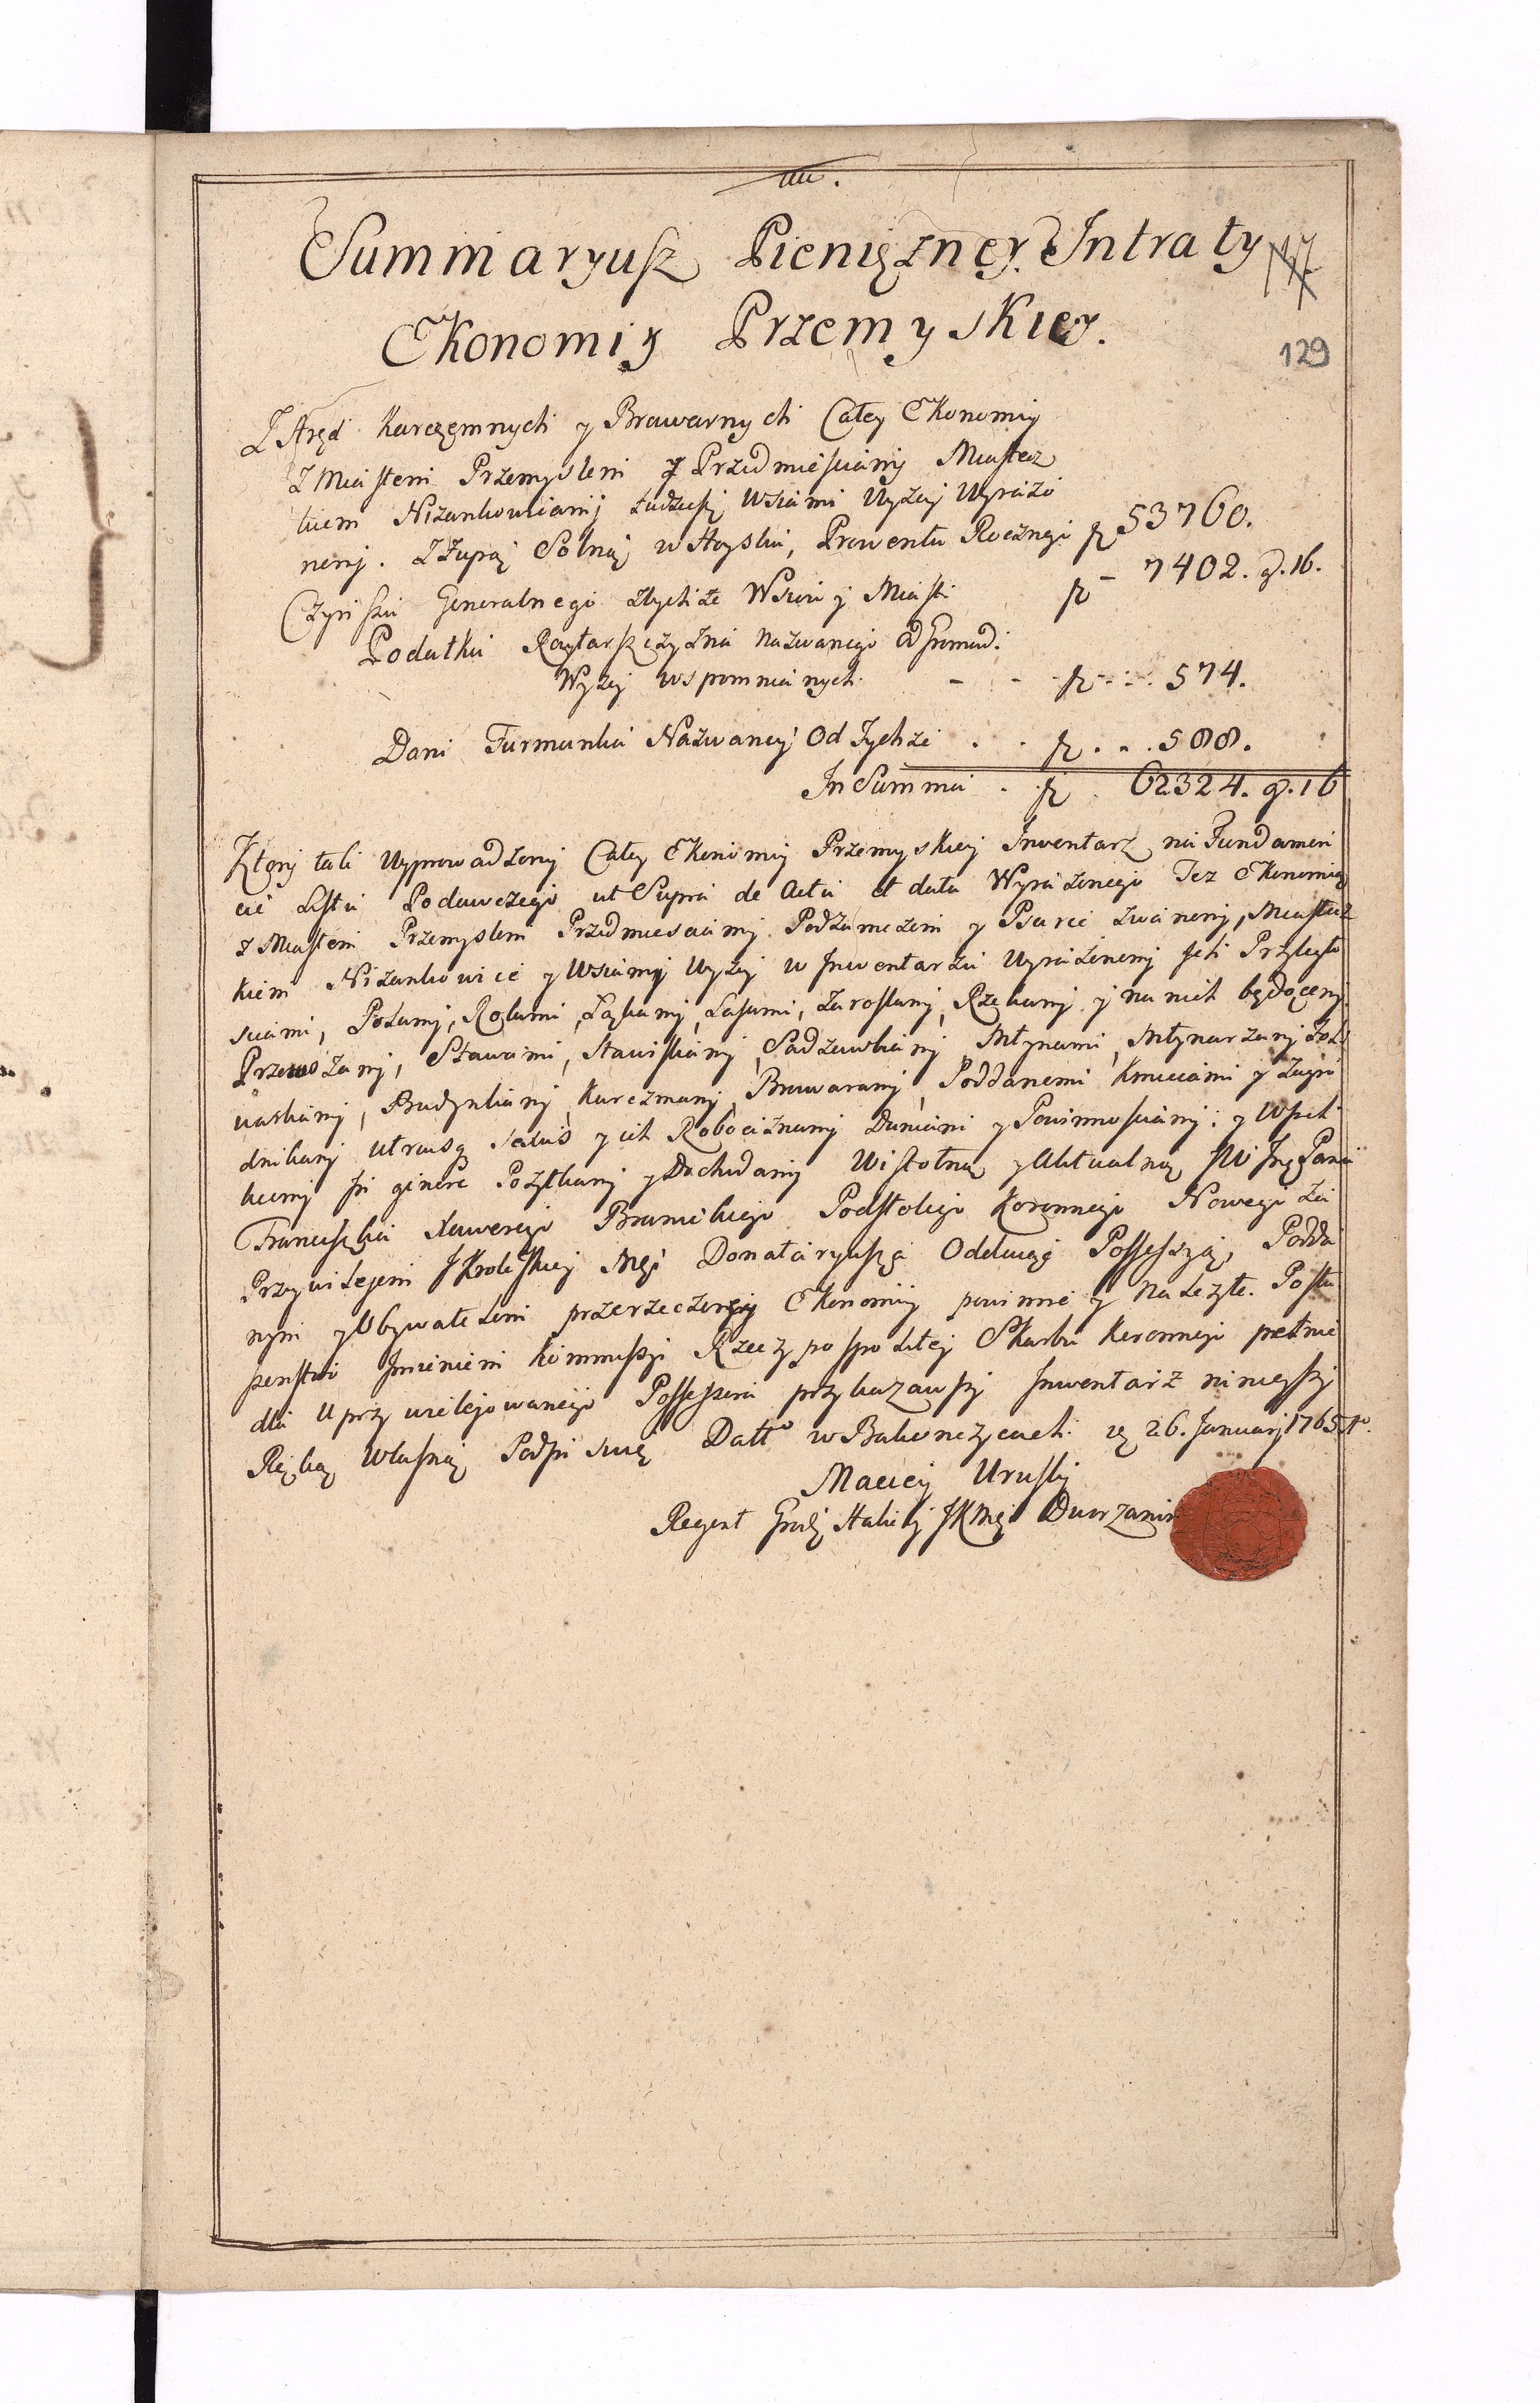 Summaryusz Pieniężney Intraty
Ekonomiy Przemyskiey.
129
Z Aręd karczęmnych y Browarnych Całey Ekonomiy
Z Miastem Przemyslem y Przedmiesciamy Miastecz
kiem Nizankowicami tudziesz Wsiami Wyzey Wyrazo
nemy. Z Żupą Solną w Huysku, Prowentu Rocznego fl 53760.
Czynszu Generalnego z tychze Wsiow y Miast fl 7402. g. 16.
Podatku Raytarszczyzna nazwanego od Gromad:
Wyzey wspomnianych. - - fl - 574.
Dani Furmanka Nazwaney Od Tychze . . fl . . . 588.
In Summa . fl . 62324. g. 16
Ktory tak Wyprowadzony Całey Ekonomiy Przemyskiey Inwentarz na Fundamen
cie Listu Podawczego ut Supra de Acta et data Wyrazonego Tez Ekonomią
z Miastem Przemyslem Przedmiesciamy Podzamczem y Psarce zwanemy, Miastecz
kiem Nizankowice y Wsiamy Wyzey w Inwentarzu Wyrazonemy ich Przyległo
sciami, Polamy, Rolami, Łąkamy, Lasami, Zaroslamy, Rzekamy y na nich będącemy
Przewozamy, Stawami, Stawiskamy, Sadzawkamy, Młynami, Młynarzamy
Budynkamy, Karczmamy, Browaramy, Poddanemi Kmieciami y Zagro
dnikamy utriusq sexus y ich Robociznamy Daniami y Powinnosciamy: y Wszel
kiemy in genere Pozytkamy y Dochodamy Wistotną y Aktualną JW Jmę Pana
Franciszka Xawerego Branickiego Podstolego Koronnego Nowego za
Przywilejem JKrolewskiey Mci Donataryusza Oddaiąc Possessyą, Podda
nym y Obywatelom przerzeczoney Ekonomiy powinne y Nalezyte. Posłu
szenstwo Imieniem Kommissyi Rzeczypospolitey Skarbu Koronnego pełnic
dla Uprzywilejowanego Possessora przykazawszy Inwentarz ninieyszy
Ręką Własną Podpisuię Datt° w Bakonczycach dę 26. January 1765 A°.
Maciey Uruski
Regent Grodz Halicki JKMci Dworzanin